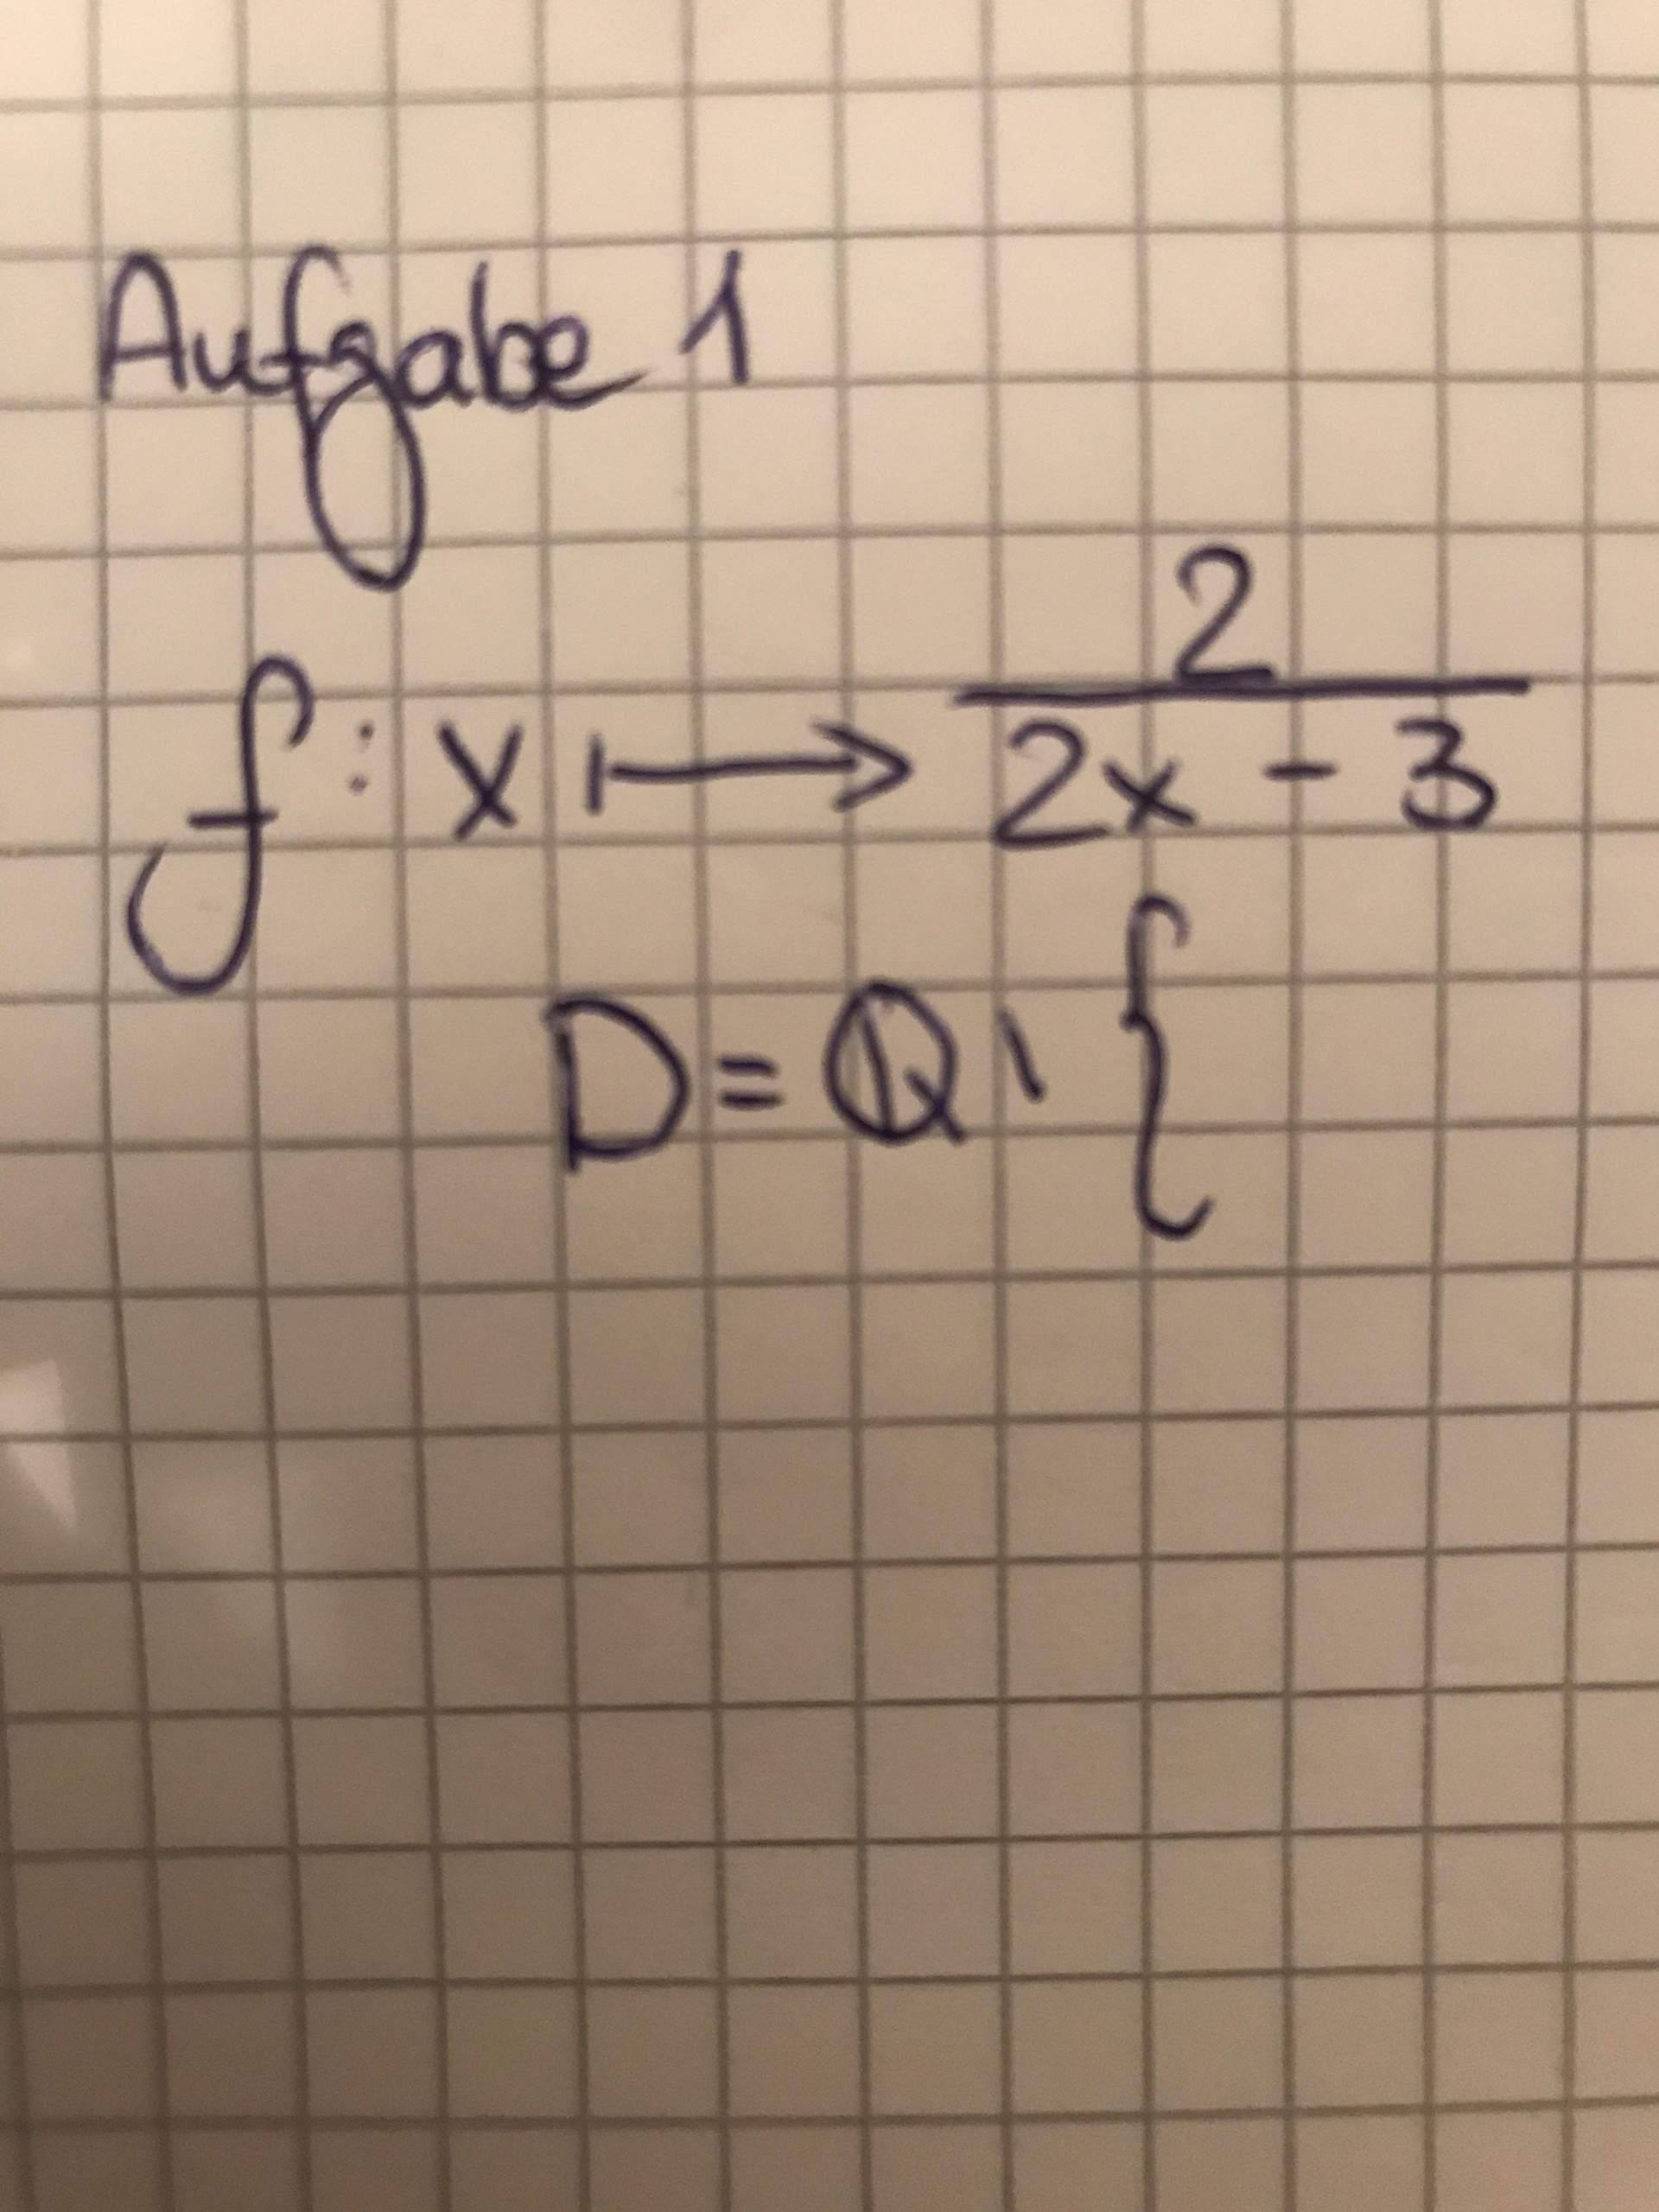 Aufgabe 1
f: x ↦ 2/(2x - 3)
D = ℚ \ {